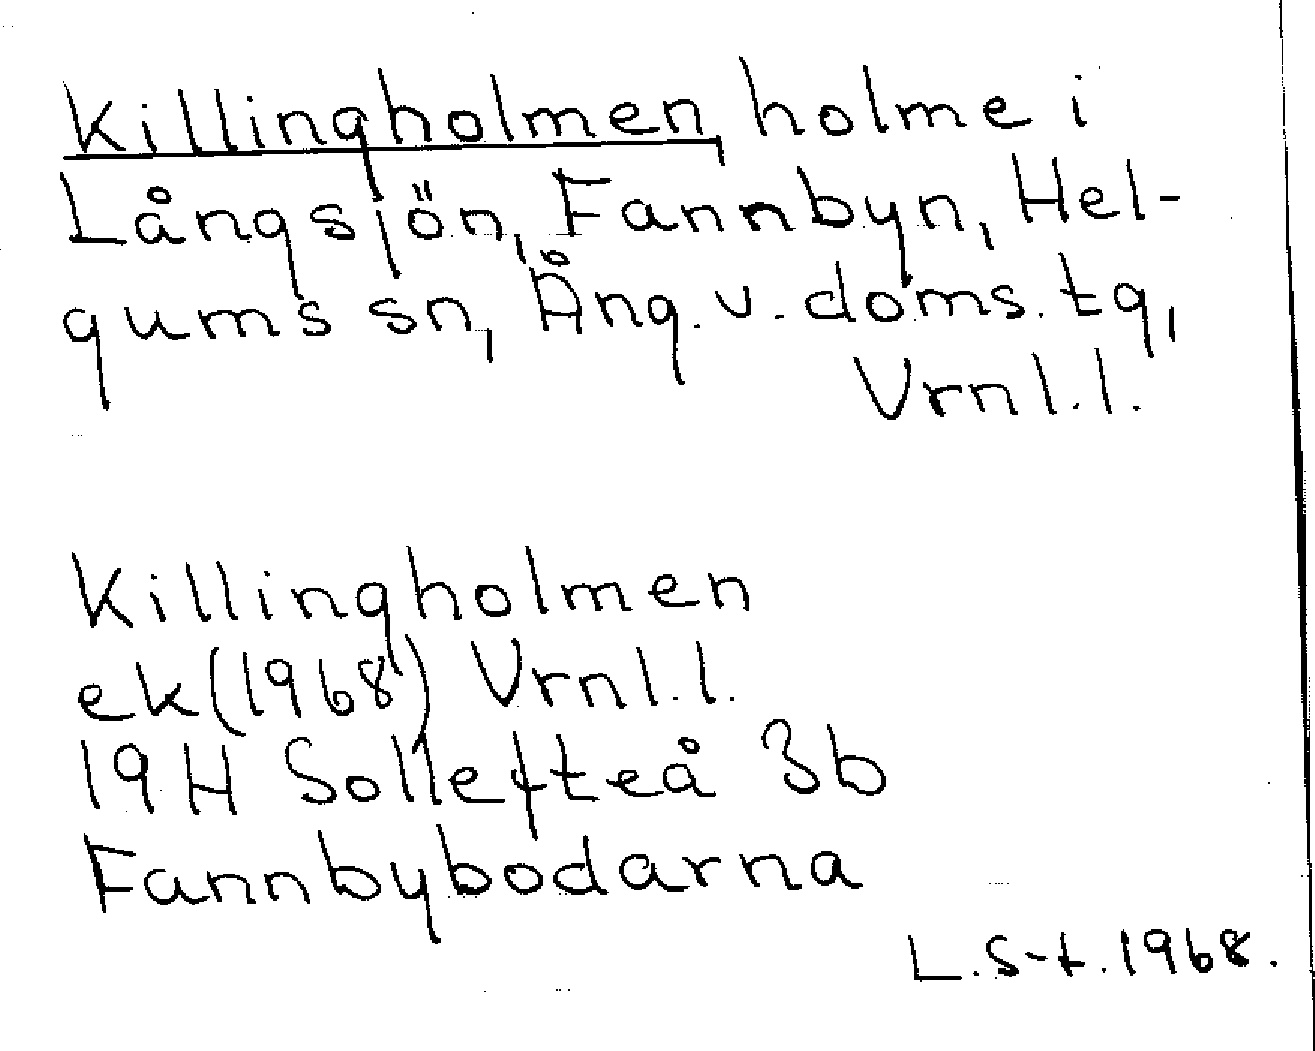 Killingholmen, holme i
Långsjön, Fannbyn, Hel-
gums sn, Ång. v. doms. tg,
Vrnl.l.
Killingholmen
ek(1968) Vrnl.l.
19H Sollefteå 3b
Fannbybodarna
L.S-t.1968.